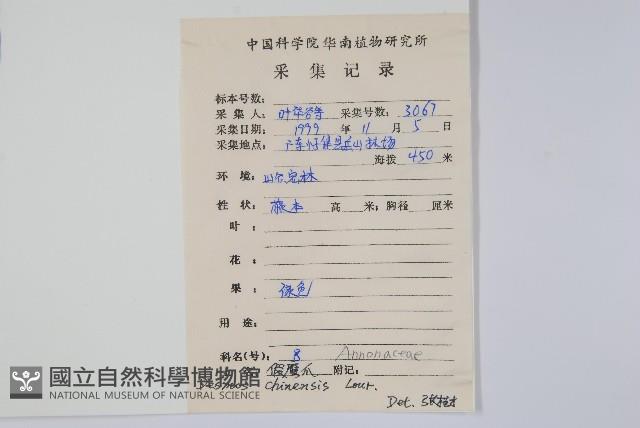 中国科学院华南植物研究所
采集记录
标本号数:
采集人: 叶华谷等 采集号数: 3067
采集日期: 1999 年 11 月 5 日
采集地点: 广东怀集县岳山林场
海拨 450 米
环境: 山谷密林
性状: 藤本 高 米; 胸径 厘米
叶:
花:
果: 绿色
用途:
科名(号): 8 Annonaceae
假鹰爪 附记:
Desmos chinensis Lour.
Det.
國立自然科學博物館
NATIONAL MUSEUM OF NATURAL SCIENCE